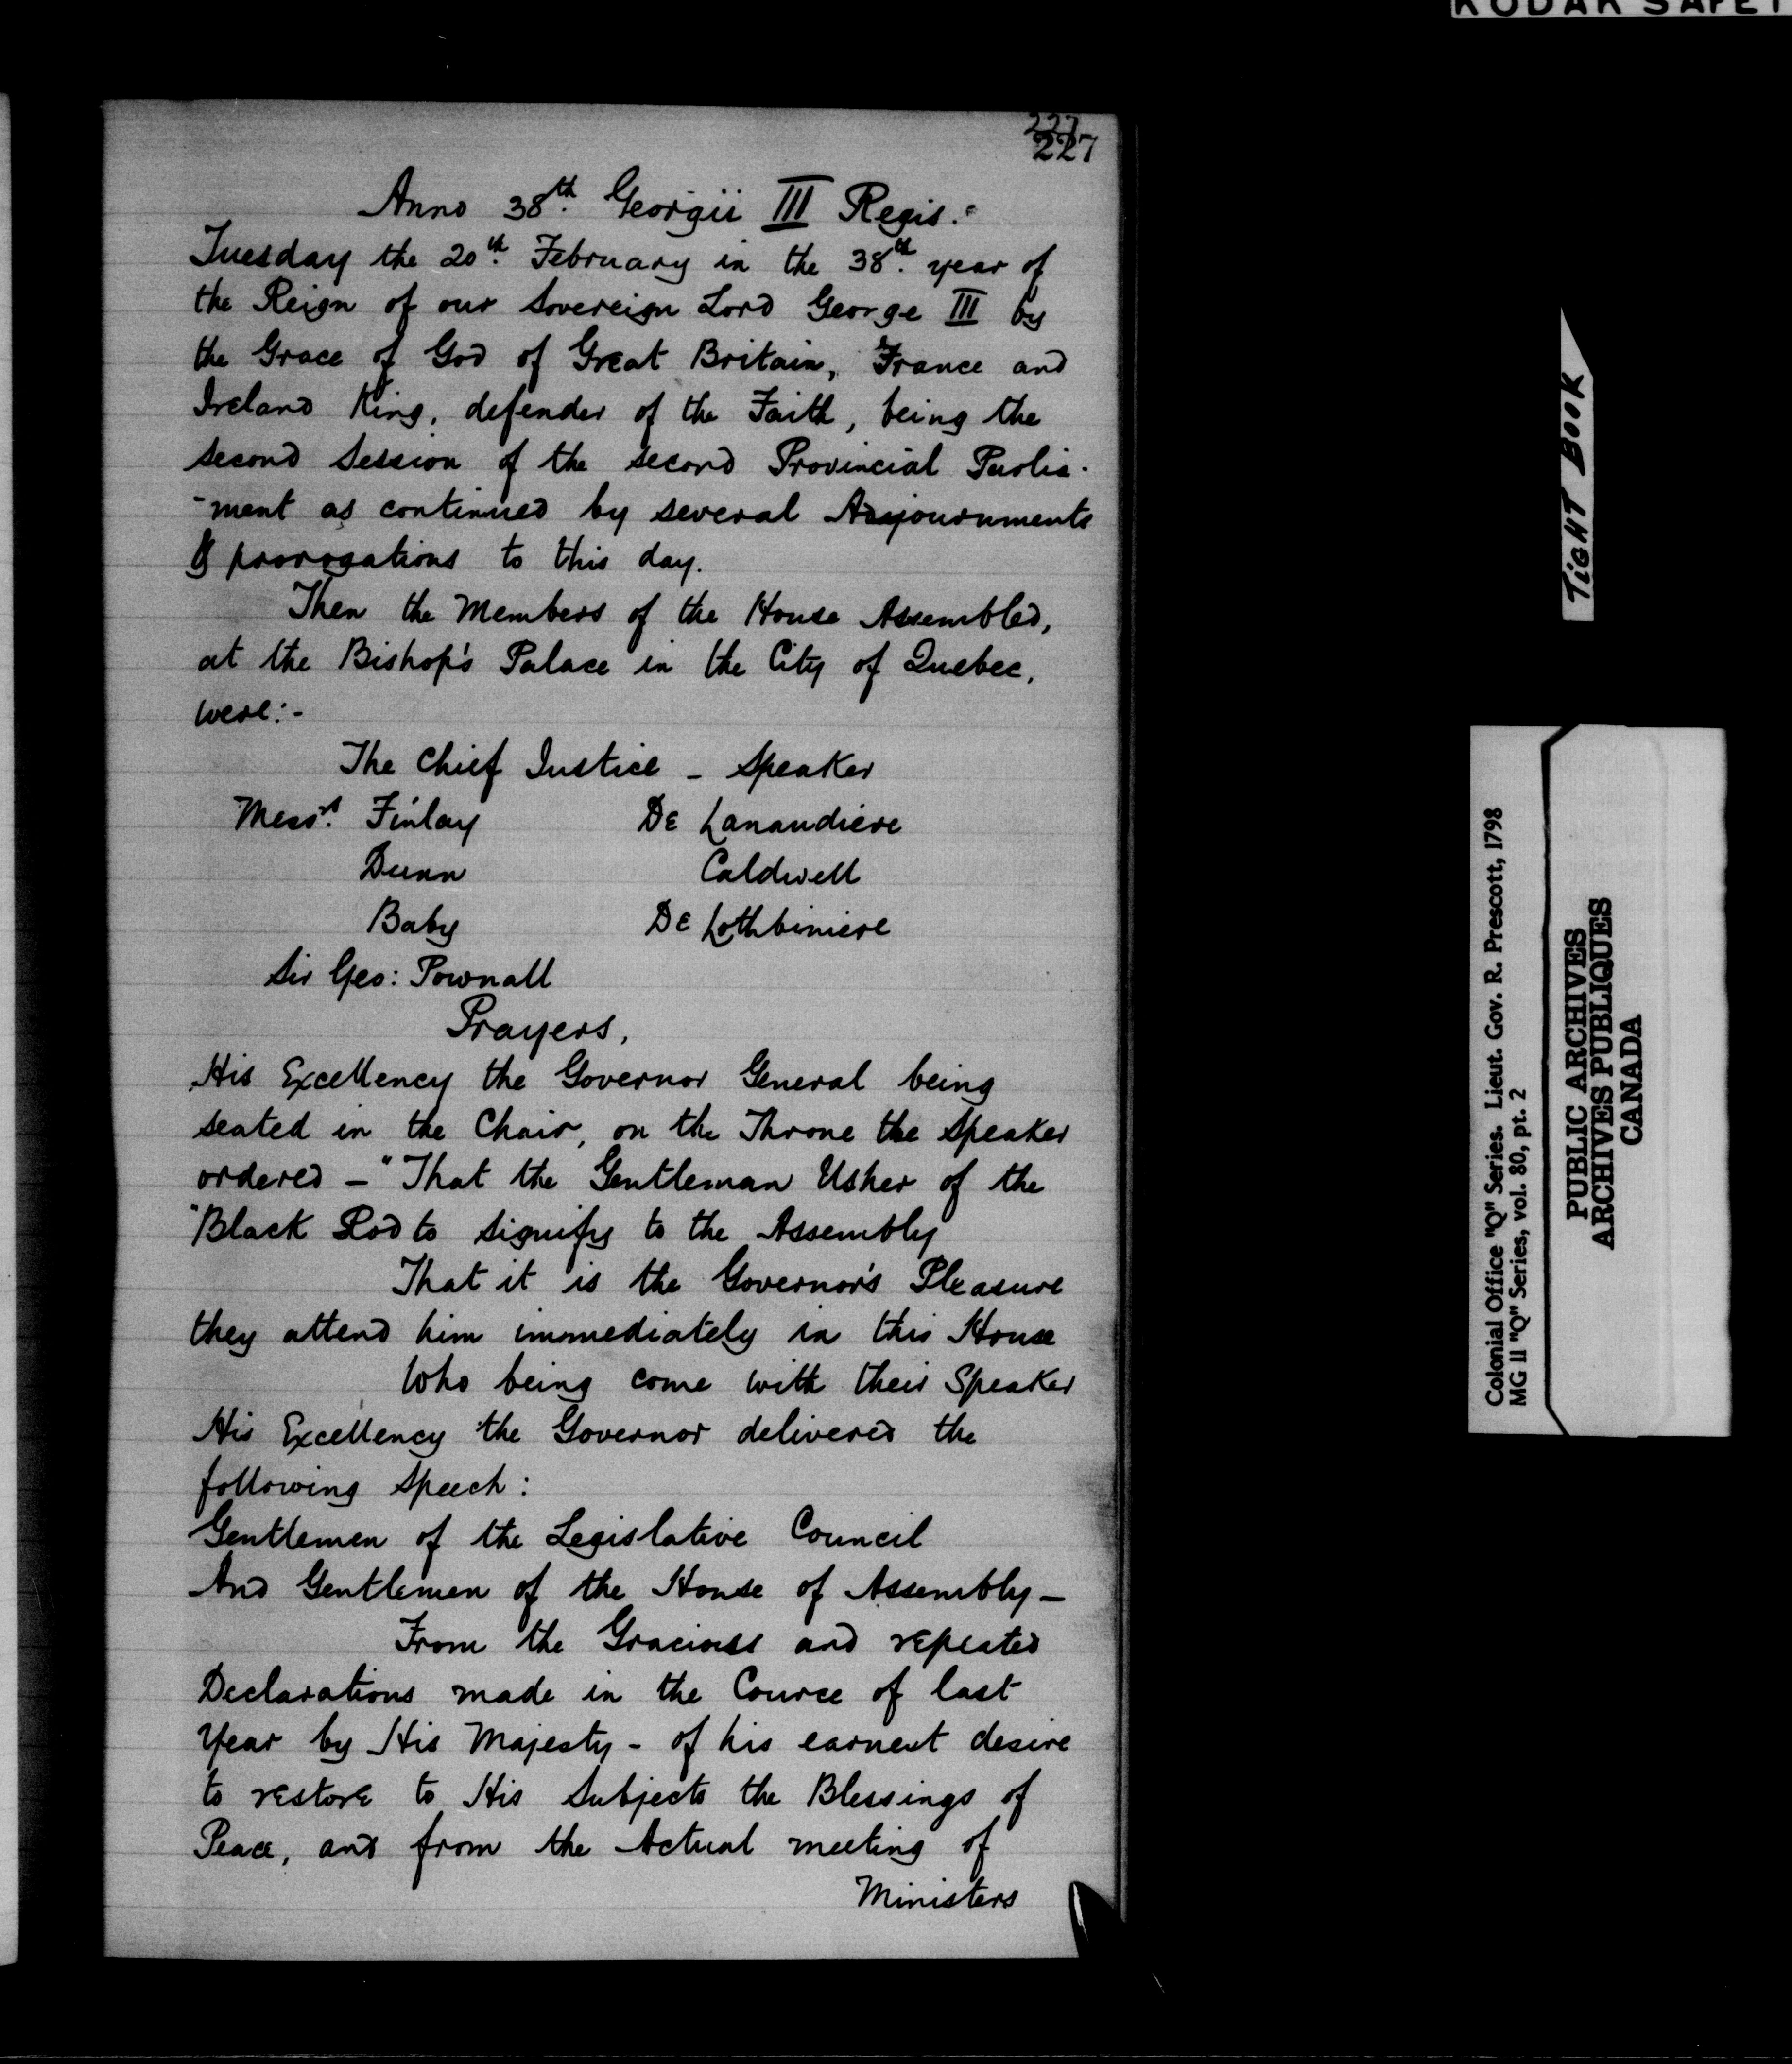 KODAK SAFET
227
227
Anno 38th. Georgii III Regis.
Tuesday the 20th. February in the 38th. year of
the Reign of our Sovereign Lord George III by
the Grace of God of Great Britain, France and
Ireland King, defender of the Faith, being the
second Session of the second Provincial Parlia-
-ment as continued by several Adjournments
& prorogations to this day.
Then the Members of the House Assembled,
at the Bishop's Palace in the City of Quebec,
were:-
The Chief Justice - Speaker
Messrs. Finlay De Lanaudiere
Dunn Caldwell
Baby De Lothbiniere
Sir Geo: Pownall
Prayers,
His Excellency the Governor General being
seated in the Chair, on the Throne the Speaker
ordered - "That the Gentleman Usher of the
"Black Rod to signify to the Assembly
That it is the Governor's Pleasure
they attend him immediately in this House
Who being come with their Speaker
His Excellency the Governor delivered the
following Speech:
Gentlemen of the Legislative Council
And Gentlemen of the House of Assembly -
From the Gracious and repeated
Declarations made in the Cource of last
Year by His Majesty - of his earnest desire
to restore to His Subjects the Blessings of
Peace, and from the Actual meeting of
Ministers
TIGHT BOOK
Colonial Office "Q" Series. Lieut. Gov. R. Prescott, 1798
MG 11 "Q" Series, vol. 80, pt. 2
PUBLIC ARCHIVES
ARCHIVES PUBLIQUES
CANADA